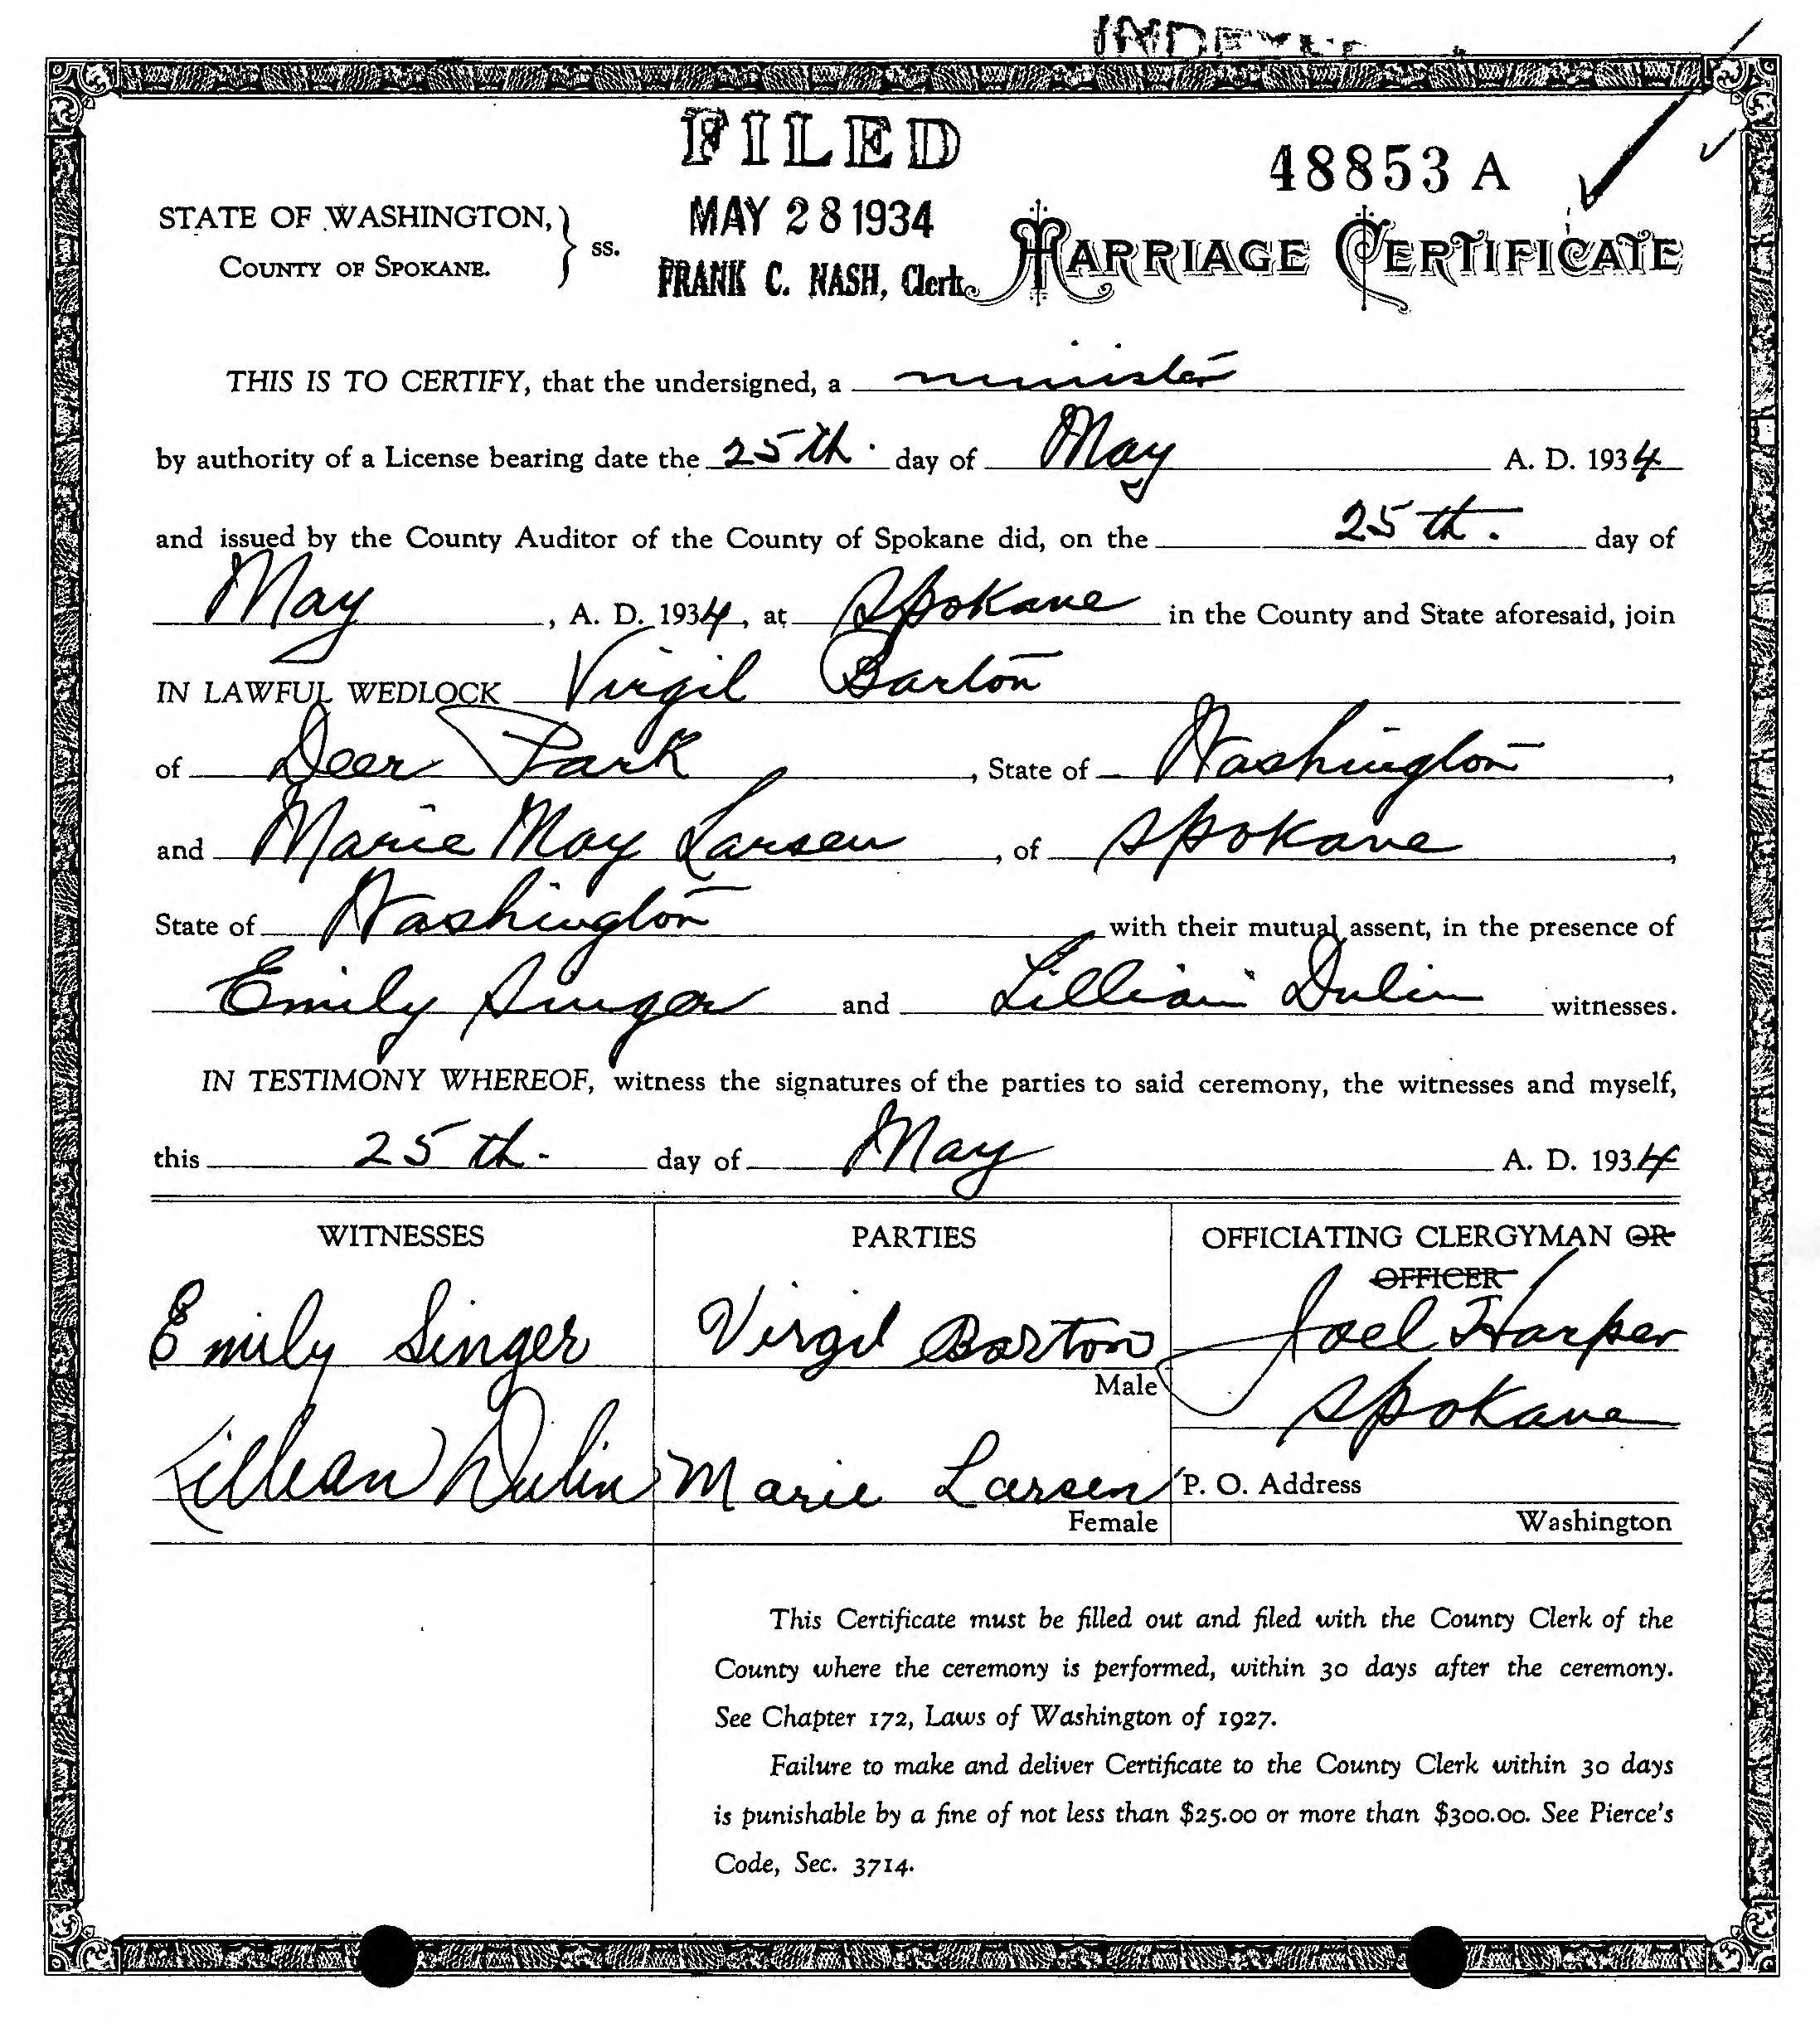 INDEXED
FILED
48853 A
STATE OF WASHINGTON, } ss.
COUNTY OF SPOKANE.
MAY 28 1934
FRANK C. NASH, Clerk
MARRIAGE CERTIFICATE
THIS IS TO CERTIFY, that the undersigned, a minister
by authority of a License bearing date the 25th. day of May A. D. 1934
and issued by the County Auditor of the County of Spokane did, on the 25th. day of
May, A. D. 1934, at Spokane in the County and State aforesaid, join
IN LAWFUL WEDLOCK Virgil Barton
of Deer Park, State of Washington,
and Marie May Larsen, of Spokane,
State of Washington with their mutual assent, in the presence of
Emily Singer and Lillian Dulin witnesses.
IN TESTIMONY WHEREOF, witness the signatures of the parties to said ceremony, the witnesses and myself,
this 25th. day of May A. D. 1934
WITNESSES PARTIES OFFICIATING CLERGYMAN OR
OFFICER
Emily Singer Virgil Barton Joel Harper
Male
Spokane
Lillian Dulin Marie Larsen P. O. Address
Female Washington
This Certificate must be filled out and filed with the County Clerk of the
County where the ceremony is performed, within 30 days after the ceremony.
See Chapter 172, Laws of Washington of 1927.
Failure to make and deliver Certificate to the County Clerk within 30 days
is punishable by a fine of not less than $25.00 or more than $300.00. See Pierce's
Code, Sec. 3714.